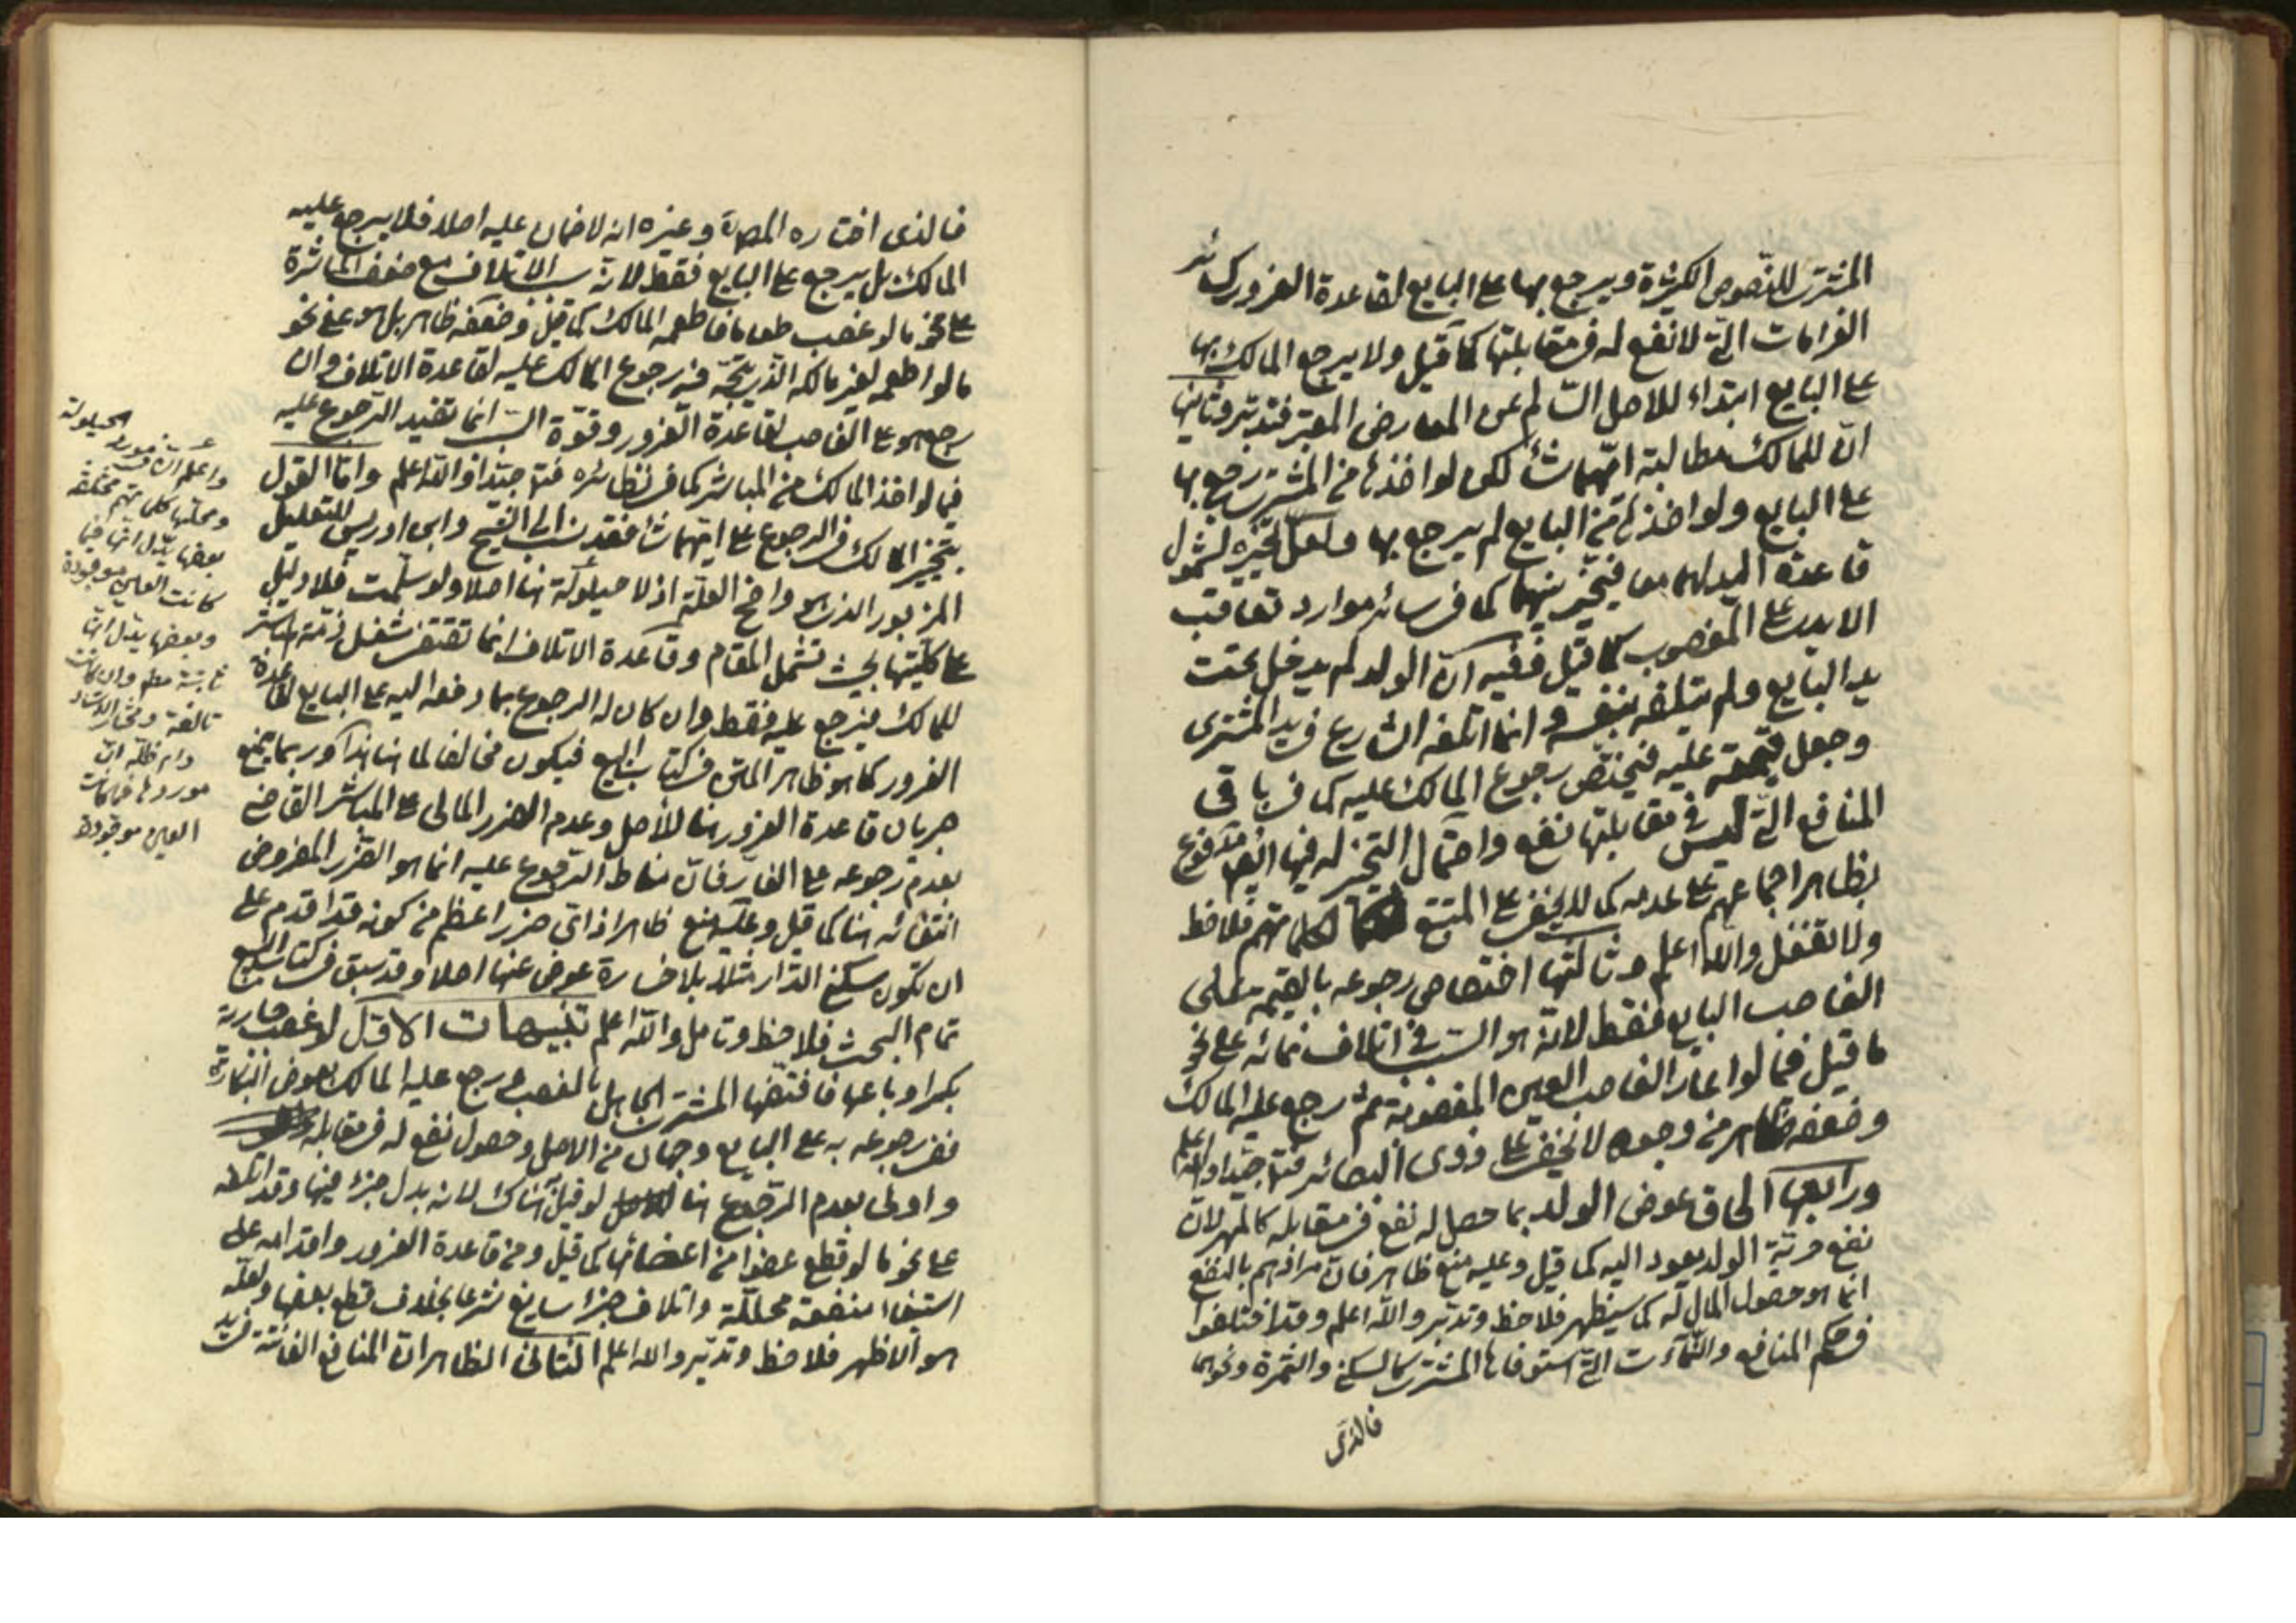 المشتری للنصوص الکثیرة ویرجع بها علی البایع لقاعدة الغرور کسائر
الغرامات التی لا نفع له فی مقابلتها کما قیل ولا یرجع المالک بها
علی البایع ابتداء للاصل السالم عن المعارض المعتبر فتدبر وثانیها
انّ للمالک مطالبة ایهما شاء لکن لو اخذها من المشتری رجع بها
علی البایع ولو اخذها من البایع لم یرجع بها ولعل تخیره لشمول
قاعدة الید لهما معا فیتخیر بینهما کما فی سائر موارد تعاقب
الایدی علی المغصوب کما قیل ففیه انّ الولد لم یدخل تحت
ید البایع ولم یتلفه بنفسه وانما اتلفه الشارع فی ید المشتری
وجعل قیمته علیه فیختص رجوع المالک علیه کما فی باقی
المنافع التی لیس فی مقابلتها نفع واحتمال التخیر له فیها ایضا مدفوع
بظاهر اجماعهم علی عدمه کما لا یخفی علی المتتبع لکلماتهم فلاحظ
ولا تغفل والله اعلم وثالثها اختصاص رجوعه بالقیمة علی
الغاصب البایع فقط لانّه هو السبب فی اتلاف نمائه علی نحو
ما قیل فیما لو اعار الغاصب العین المغصوبة ثم رجع علیه المالک
وضعفه ظاهر من وجوه لا تخفی علی ذوی البصائر فتا جیدا والله اعلم
ورابعها الحاق عوض الولد بما حصل له نفع فی مقابله کالمهر لانّ
نفع حریّة الولد یعود الیه کما قیل وعلیه منع ظاهر فانّ مرادهم بالنفع
انما هو حصول المال له کما سیظهر فلاحظ وتدبّر والله اعلم وقد اختلفوا
فی حکم المنافع والنماءات التی استوفاها المشتری کالسکنی والثمرة ونحوهما
فالذی
فالذی اختاره المصره وغیره انه لا ضمان علیه اصلا فلا یرجع علیه
المالک بل یرجع علی البایع فقط لانه سبب الاتلاف مع ضعف المباشرة
علی نحو ما لو غصب طعاما فاطعمه المالک کما قیل وضعفه ظاهر بل هو علی نحو
ما لو اطعمه لغیر مالکه الذی یتجه فیه رجوع المالک علیه لقاعدة الاتلاف وان
رجع هو علی الغاصب لقاعدة الغرور وقوّة السبب انما تفید الرجوع علیه
فیما لو اخذ المالک من المباشر کما فی نظائره فتا جیدا والله اعلم واما القول
بتخییر المالک فی الرجوع علی ایهما شاء فقد نسب الی الشیخ وابن ادریس للتعلیل
المزبور الذی هو واضح العلة اذ لا حیلولة هنا اصلا ولو سلّمت فلا دلیل
علی کلیتها بحیث تشمل المقام وقاعدة الاتلاف انما تقتضی شغل ذمّة المباشر
للمالک فیرجع علیه فقط وان کان له الرجوع بما دفعه الیه علی البایع لقاعدة
الغرور کما هو ظاهر المتن فی کتاب البیع فیکون مخالفا لما هنا هذا وربما یمنع
جریان قاعدة الغرور هنا للاصل وعدم الضرر المالی علی المباشر القاضی
بعدم رجوعه علی الغارّ فانّ مناط الرجوع علیه انما هو الضرر المفروض
انتفائه هنا کما قیل وعلیه منع ظاهر اذ ای ضرر اعظم من کونه قد اقدم علی
ان تکون سکنی الدار مثلا بلا خسارة عوض عنها اصلا وقد سبق فی کتاب البیع
تمام البحث فلاحظ وتامل والله اعلم تنبیهات الاوّل لو غصب جاریة
بکرا وباعها فافتضّها المشتری الجاهل بالغصب ورجع علیه المالک بعوض البکارة
ففی رجوعه به علی البایع وجهان من الاصل وحصول نفع له فی مقابله
واولی بعدم الرجوع هنا لو قیل هناک لانه بدل جزء فیها وقد اتلفه
علی نحو ما لو قطع عضوا من اعضائها کما قیل ومن قاعدة الغرور واقدامه علی
استیفاء منفعة محللّة واتلاف جزء سایغ شرعا بخلاف قطع بعضها ولعلّه
هو الاظهر فلاحظ وتدبّر والله اعلم الثانی الظاهر انّ المنافع الفائتة فی ید
واعلم ان فی مورد الحیلولة
ومحلّها کلماتهم مختلفة
بعضها یدل انها فیما
کانت العین موجودة
وبعضها یدل انها
ثابتة مطم وان کانت
تالفة ومختار الاستاد
دام ظلّه انّ
موردها فیما کانت
العین موجودة